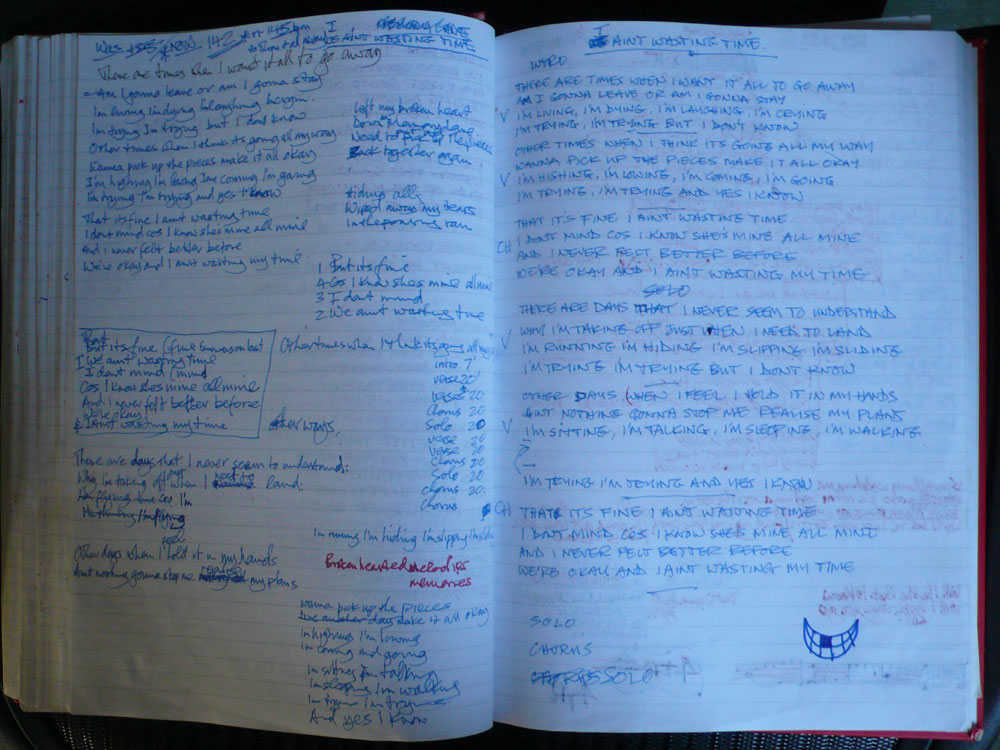 I
AINT WASTING TIME
There are times when I want it all to go away
Am I gonna leave or am I gonna stay
Im trying Im trying but I dont know
Other times when I think its going all my way
Wanna pick up the pieces make it all okay
I'm highing I'm lowing Im coming I'm going
Im trying I'm trying and yes I know
That its fine I aint wasting time
I dont mind cos I know she's mine all mine
And i never felt better before
We're okay and I aint wasting my time
Left my broken heart
Need to pick up the pieces
Back together again
Hiding all
Wiped away my tears
In the pouring rain
1 But its fine
4 Cos I know shes mine all mine
3 I dont mind
2 We aint wasting time
But its fine (fine
I We aint wasting time
I dont mind (mind
Cos I know shes mine all mine
And i never felt better before
We're okay
I Aint wasting my time
Other times when I think its going all
intro 7
verse 20
verse 20
Chorus 20
Solo 20
verse 20
verse 20
Chorus 20
Solo 20
chorus 20
Chorus
other ways
There are days that I never seem to understand
Why I'm taking off just when I need to land
Im running I'm hiding I'm slipping I'm
Other days when I hold it in my hands
Aint nothing gonna stop me my plans
Broken hearted melodies
memories
wanna pick up the pieces
make it all okay
Im highing I'm lowing
Im coming and going
Im sitting I'm talking
Im sleeping I'm walking
Im trying I'm trying
And yes I know
I AINT WASTING TIME.
THERE ARE TIMES WHEN I WANT IT ALL TO GO AWAY
AM I GONNA LEAVE OR AM I GONNA STAY
V I'M LIVING, I'M DYING, I'M LAUGHING, I'M CRYING
I'M TRYING, I'M TRYING BUT I DON'T KNOW
OTHER TIMES WHEN I THINK ITS GOING ALL MY WAY
WANNA PICK UP THE PIECES MAKE IT ALL OKAY
V I'M HIGHING, I'M LOWING, I'M COMING, I'M GOING
I'M TRYING, I'M TRYING AND YES I KNOW
THAT IT'S FINE I AINT WASTING TIME
CH I DONT MIND COS I KNOW SHE'S MINE ALL MINE
AND I NEVER FELT BETTER BEFORE
WE'RE OKAY AND I AINT WASTING MY TIME
SOLO
THERE ARE DAYS THAT I NEVER SEEM TO UNDERSTAND
WHY I'M TAKING OFF JUST WHEN I NEED TO LAND
V I'M RUNNING I'M HIDING I'M SLIPPING I'M SLIDING
I'M TRYING I'M TRYING BUT I DONT KNOW
OTHER DAYS (WHEN I FEEL I HOLD IT IN MY HANDS
AINT NOTHING GONNA STOP ME REALISE MY PLANS
V I'M SITTING, I'M TALKING, I'M SLEEPING, I'M WALKING
I'M TRYING I'M TRYING AND YES I KNOW
CH THAT ITS FINE I AINT WASTING TIME
I DONT MIND COS I KNOW SHES MINE ALL MINE
AND I NEVER FELT BETTER BEFORE
WE'RE OKAY AND I AINT WASTING MY TIME
SOLO
CHORUS
SOLO